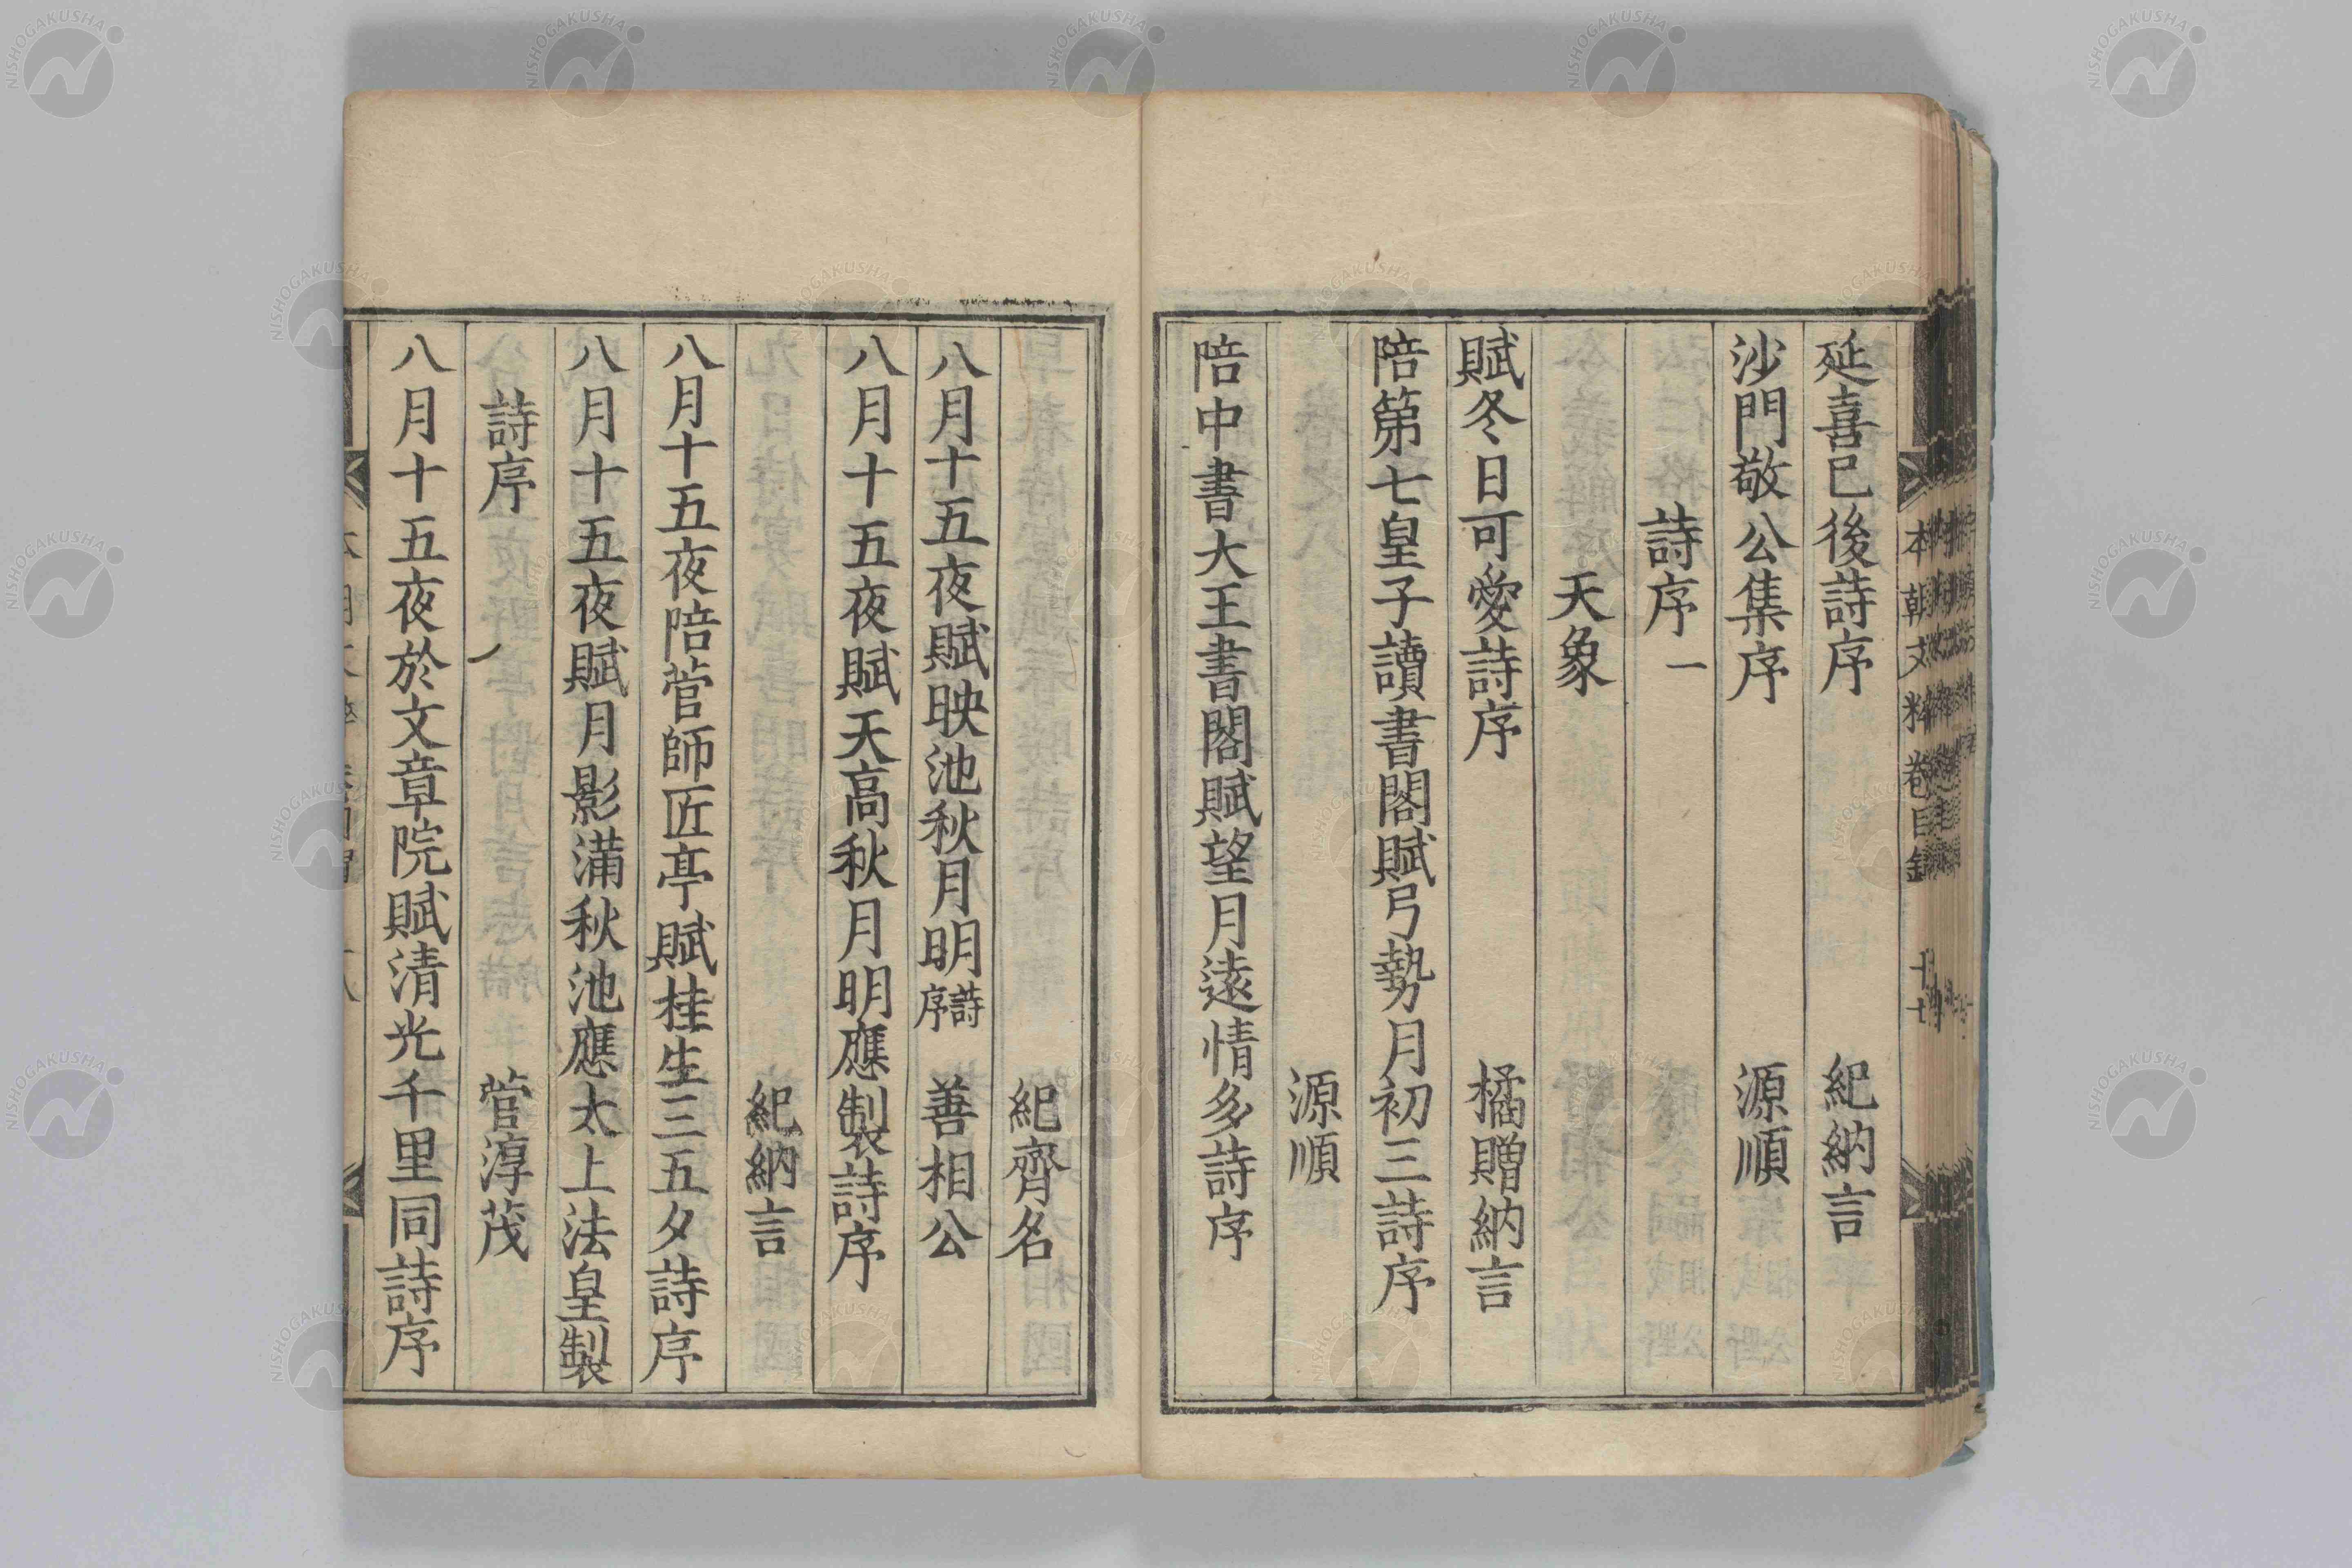 延喜已後詩序　紀納言
沙門敬公集序　源順
詩序一
天象
賦冬日可愛詩序　橘贈納言
陪第七皇子讀書閣賦弓勢月初三詩序
源順
陪中書大王書閣賦望月遠情多詩序
紀齊名
八月十五夜賦映池秋月明詩序　善相公
八月十五夜賦天高秋月明應製詩序
紀納言
八月十五夜陪菅師匠亭賦桂生三五夕詩序
八月十五夜賦月影滿秋池應太上法皇製
詩序　菅淳茂
八月十五夜於文章院賦清光千里同詩序
本朝文粹卷目錄　十七
NISHOGAKUSHA